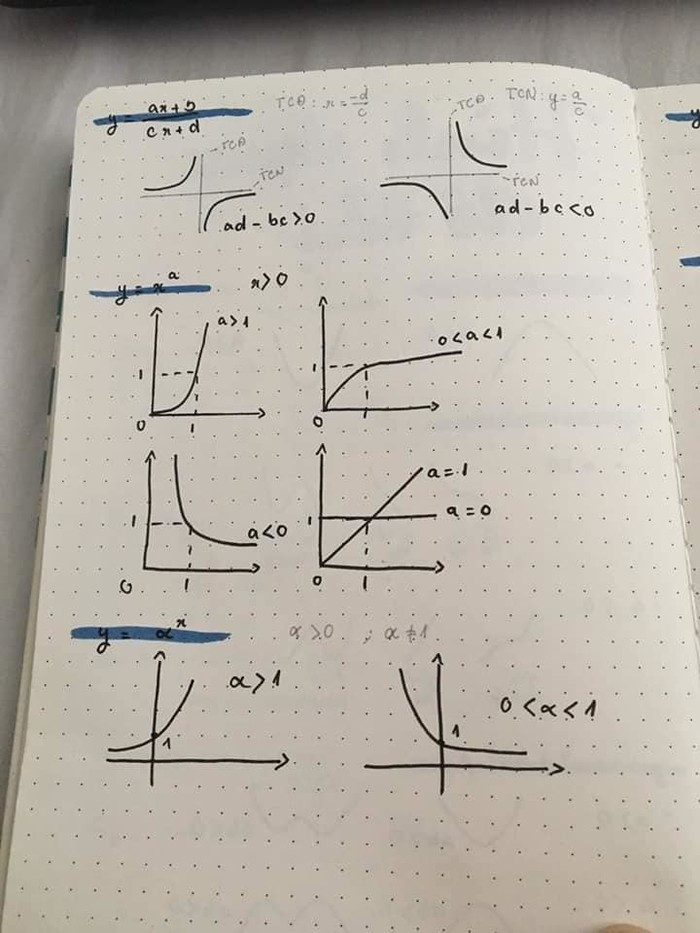 y = (ax+b)/(cx+d)    TCĐ: x = -d/c    TCN: y = a/c
TCĐ    TCĐ
TCN    TCN
ad - bc > 0    ad - bc < 0
y = x^a    x > 0
a > 1    0 < a < 1
1    1
0    1    0    1
a = 1
a = 0
1    a < 0    1
0    1    0    1
y = α^x    α > 0 ; α ≠ 1
α > 1    0 < α < 1
1    1